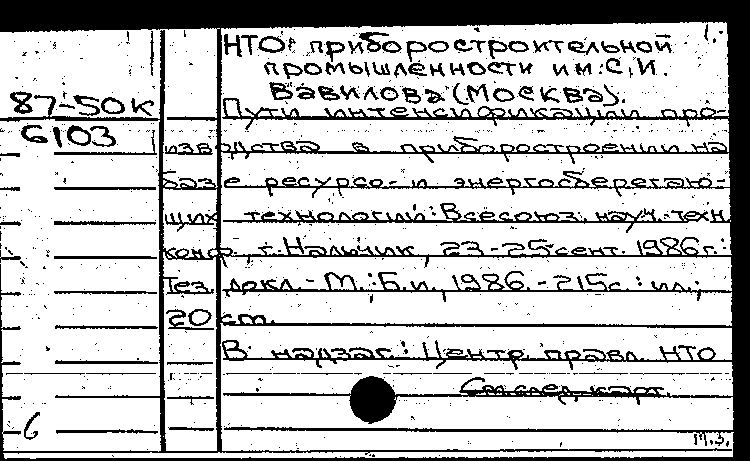 1.
НТО приборостроительной
промышленности им. С.И.
Вавилова (Москва).
87-50к
6103
Пути интенсификации про-
изводства в приборостроении на
базе ресурсо- и энергосберегаю-
щих технологий: Всесоюз. науч.-техн.
конф., г. Нальчик, 23-25 сент. 1986г.:
Тез. докл. - М.: Б.и., 1986. - 215с.: ил.;
20 см.
В надзаг.: Центр. правл. НТО
См. след. карт.
6
м.з.